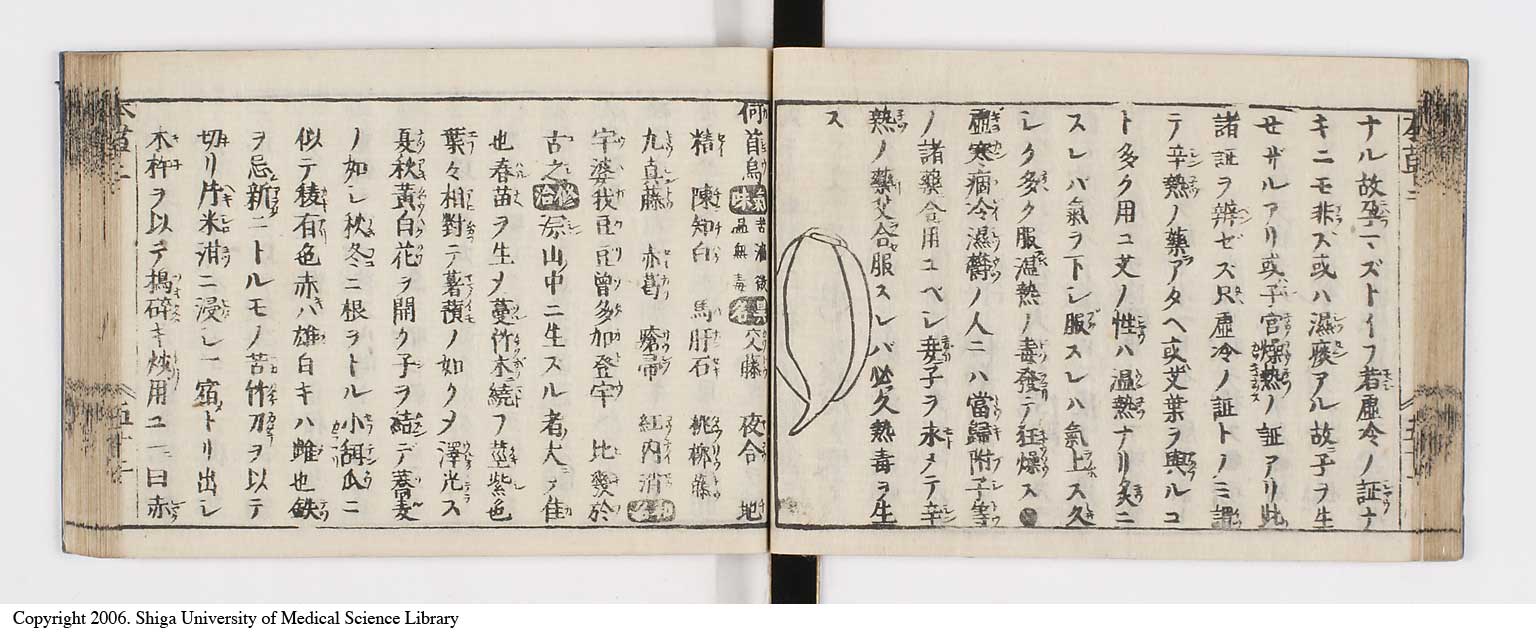 ナル故孕マズトイフ若虚冷ノ証ナ
キニモ非ズ或ハ濕痰アル故子ヲ生
セザルアリ或子宮燥熱ノ証アリ此
諸証ヲ辨ゼズ只虚冷ノ証トノミ謂
テ辛熱ノ藥アタヘ或艾葉ヲ與ルコ
ト多ク用ユ艾ノ性ハ温熱ナリ炙ニ
スレバ氣ヲ下シ服スレハ氣上ス久
シク多ク服温熱ノ毒發テ狂燥ス
虚寒病冷濕欝ノ人ニハ當歸附子等
ノ諸藥合用ユベシ妾子ヲ求メテ辛
熱ノ藥艾合服スレバ必久熱毒ヲ生
ス
何首烏 氣味 苦濇微温無毒 異名 交藤 夜合 地
精 陳知白 馬肝石 桃柳藤
九真藤 赤葛 瘡帚 紅内消 和名
宇婆我豆豆曾多加登宇 比愛於
古之 修治 原山中ニ生スル者大ヲ佳
也春苗ヲ生メ蔓竹木繞フ莖紫色
葉々相對テ薯蕷ノ如クメ澤光ス
夏秋黄白花ヲ開ク子ヲ結テ蕎麦
ノ如シ秋冬ニ根ヲトル小甜瓜ニ
似テ稜有色赤バ雄白キハ雌也鉄
ヲ忌新ニトルモノ苦竹刀ヲ以テ
切リ片米泔ニ浸シ一宿トリ出シ
木杵ヲ以テ搗碎キ焙用ユ一曰赤
Copyright 2006. Shiga University of Medical Science Library